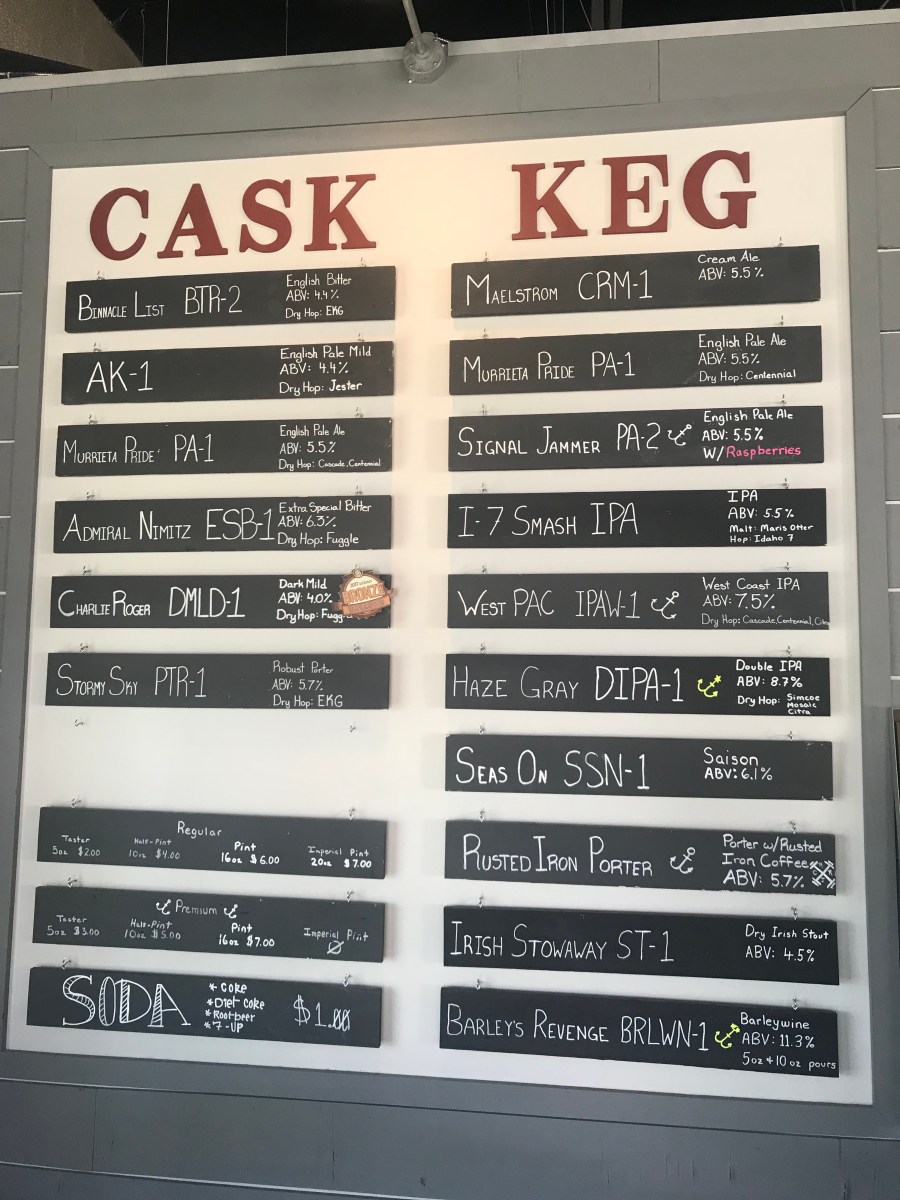 CASK
BINNACLE LIST BTR-2
English Bitter
ABV: 4.4%
Dry Hop: EKG
AK-1
English Pale Mild
ABV: 4.4%
Dry Hop: Jester
MURRIETA PRIDE PA-1
English Pale Ale
ABV: 5.5%
Dry Hop: Cascade, Centennial
ADMIRAL NIMITZ ESB-1
Extra Special Bitter
ABV: 6.3%
Dry Hop: Fuggle
CHARLIE ROGER DMLD-1
Dark Mild
ABV: 4.0%
Dry Hop:
BRONZE
STORMY SKY PTR-1
Robust Porter
ABV: 5.7%
Dry Hop: EKG
Regular
Taster Half-Pint Pint Imperial Pint
5oz $2.00 10oz $4.00 16oz $6.00 20oz $7.00
Premium
Taster Half-Pint Pint Imperial Pint
5oz $3.00 10oz $5.00 16oz $7.00
SODA
* Coke
* Diet Coke
* Rootbeer
* 7-UP
$1.00
KEG
MAELSTROM CRM-1
Cream Ale
ABV: 5.5%
MURRIETA PRIDE PA-1
English Pale Ale
ABV: 5.5%
Dry Hop: Centennial
SIGNAL JAMMER PA-2
English Pale Ale
ABV: 5.5%
W/Raspberries
I-7 SMASH IPA
IPA
ABV: 5.5%
Malt: Maris Otter
Hop: Idaho 7
WEST PAC IPAW-1
West Coast IPA
ABV: 7.5%
Dry Hop: Cascade, Centennial,
HAZE GRAY DIPA-1
Double IPA
ABV: 8.7%
Dry Hop: Simcoe
Mosaic
Citra
SEAS ON SSN-1
Saison
ABV: 6.1%
RUSTED IRON PORTER
Porter w/Rusted
Iron Coffee
ABV: 5.7%
IRISH STOWAWAY ST-1
Dry Irish Stout
ABV: 4.5%
BARLEY'S REVENGE BRLWN-1
Barleywine
ABV: 11.3%
5oz + 10oz pours